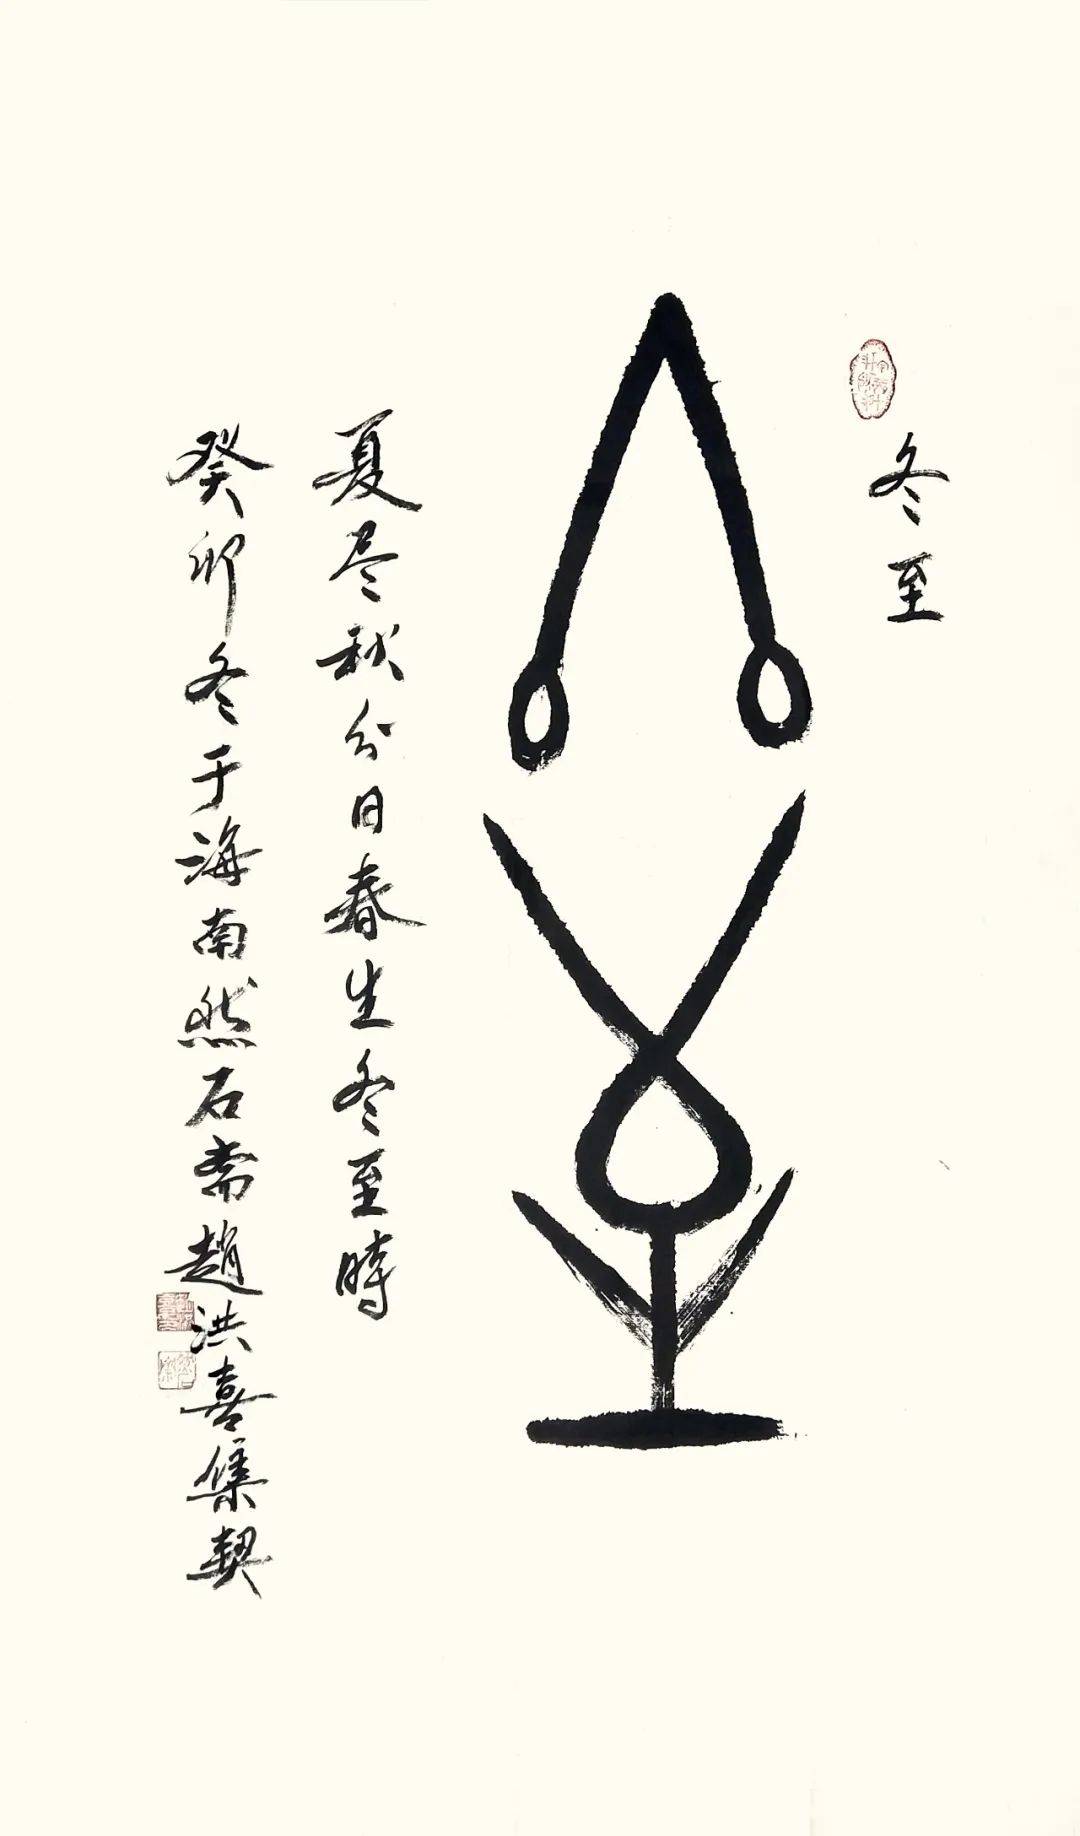 冬至
冬至
夏尽秋分日春生冬至時
癸卯冬于海南然石斋趙洪喜集契